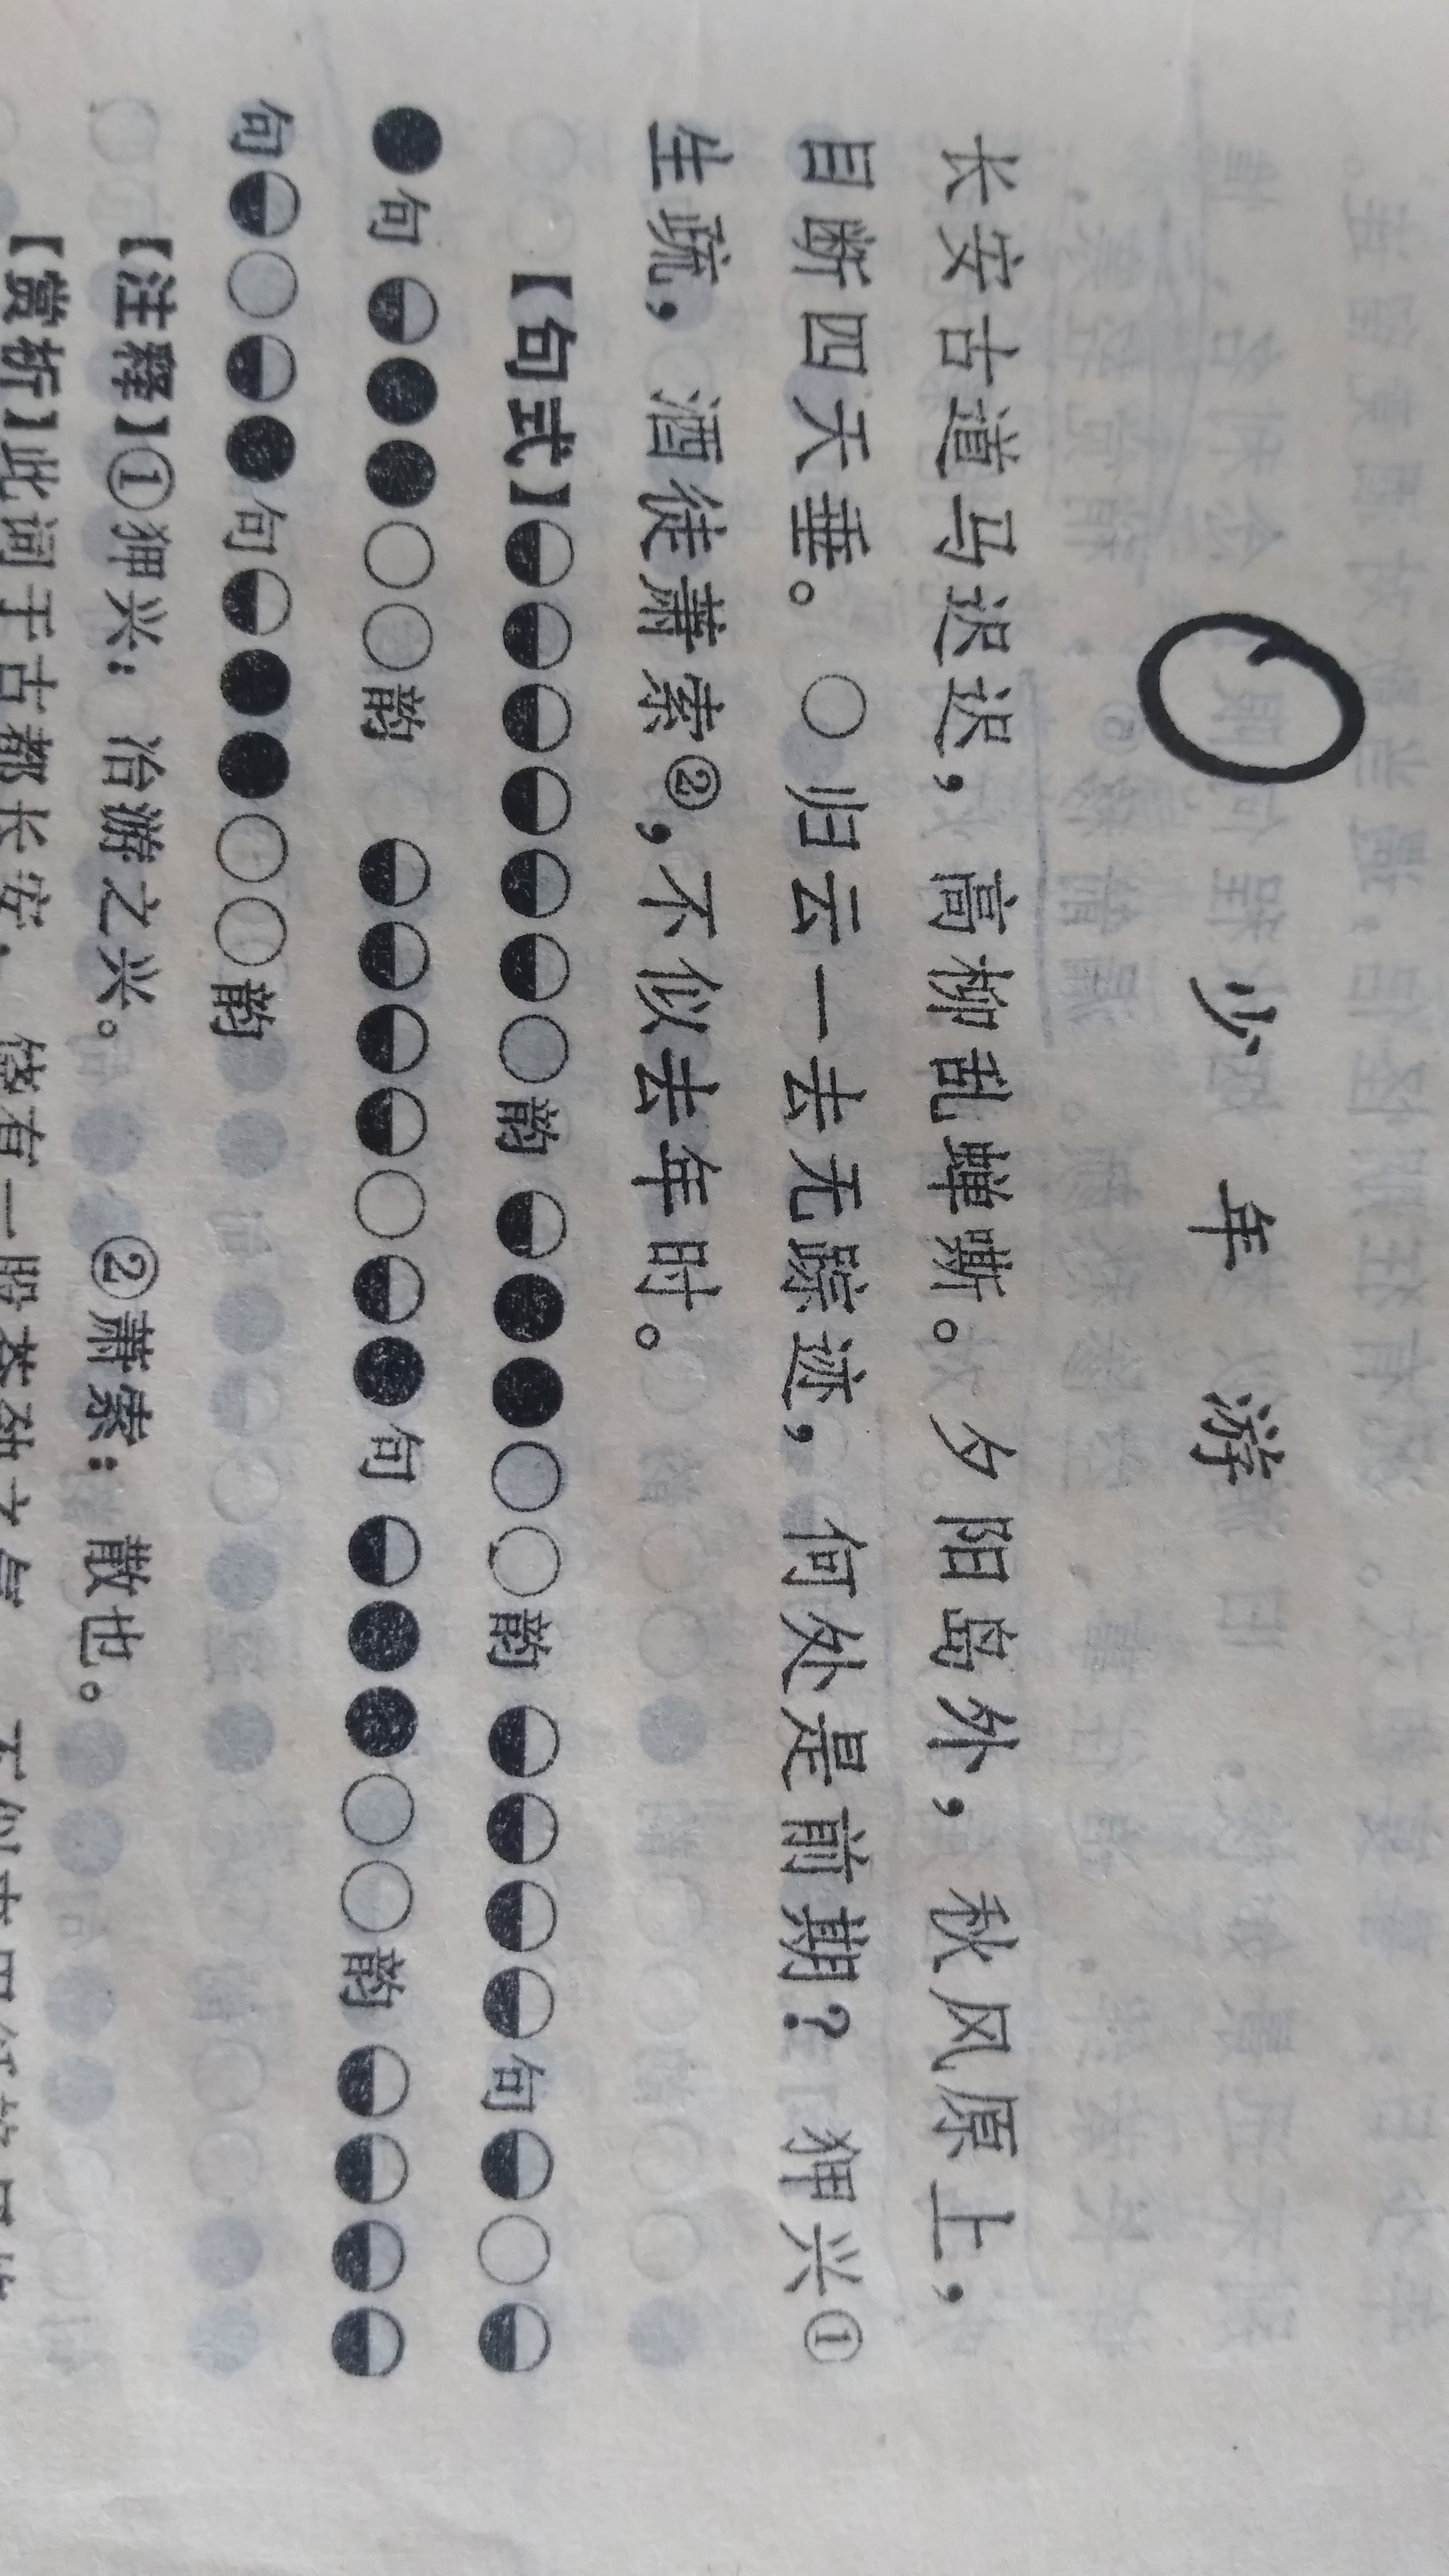 少年游
长安古道马迟迟，高柳乱蝉嘶。夕阳岛外，秋风原上，
目断四天垂。○归云一去无踪迹，何处是前期？狎兴①
生疏，酒徒萧索②，不似去年时。
【句式】◐◐◐◐◐◐○韵 ◐●●○○韵 ◐◐◐◐句◐○◐
●句◐●●○○韵 ◐◐◐◐○◐●句◐●●○○韵◐◐◐◐
句◐○◐●句◐●●○○韵
【注释】①狎兴：冶游之兴。 ②萧索：散也。
【赏析】此词于古都长安，